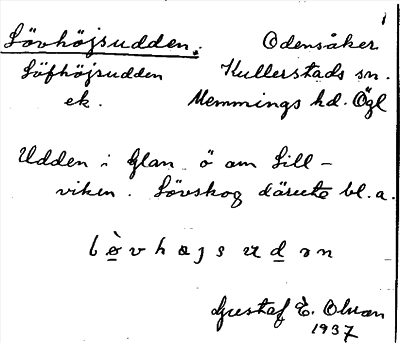 1
Lövhöjsudden. Odensåker
Löfhöjsudden Kullerstads sn.
ek. Memmings hd. Ögl
Udden i Glan ö om Lill-
viken. Lövskog därute bl.a.
Gustaf E. Olson
1937